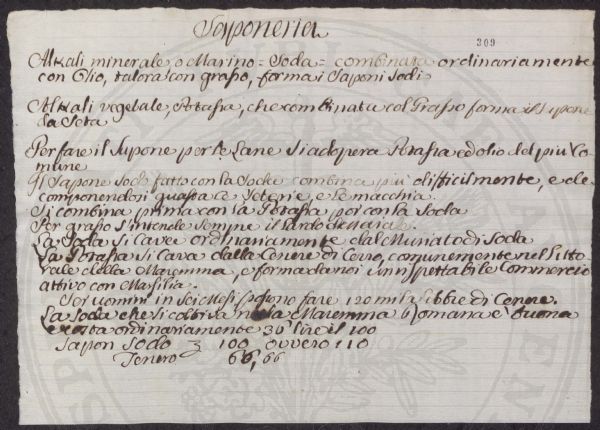 Saponeria
309
Alkali minerale, o Marino = Soda = combinata ordinariamente
con Olio, talora con grasso, forma i Saponi Sodi
Alkali vegetale, Potassa, che combinata col Grasso forma il Sapone
da Seta
Per fare il Sapone per le Lane si adopera Potassa ed olio del più Co-
mune
Il Sapone Sodo fatto con la Soda combina più difficilmente, e de
componendosi guasta le Seterie, e le macchia.
Si combina prima con la Potassa poi con la Soda
Per grasso s'intende sempre il Lardo de Maiale.
La Soda si cava ordinariamente dal Muriato di Soda
La Potassa si cava dalla Cenere di Cerro, comunemente nel Litto-
rale della Maremma, e forma da noi un rispettabile Commercio
attivo con Marsilia.
Sei uomini in Sei Mesi possono fare 120 mila Libbre di Cenere.
La Soda che si coltiva nella Maremma Romana è buona
e costa ordinariamente 30 lire il 100
Sapon Sodo 100 ovvero 110
Tenero 66, 66